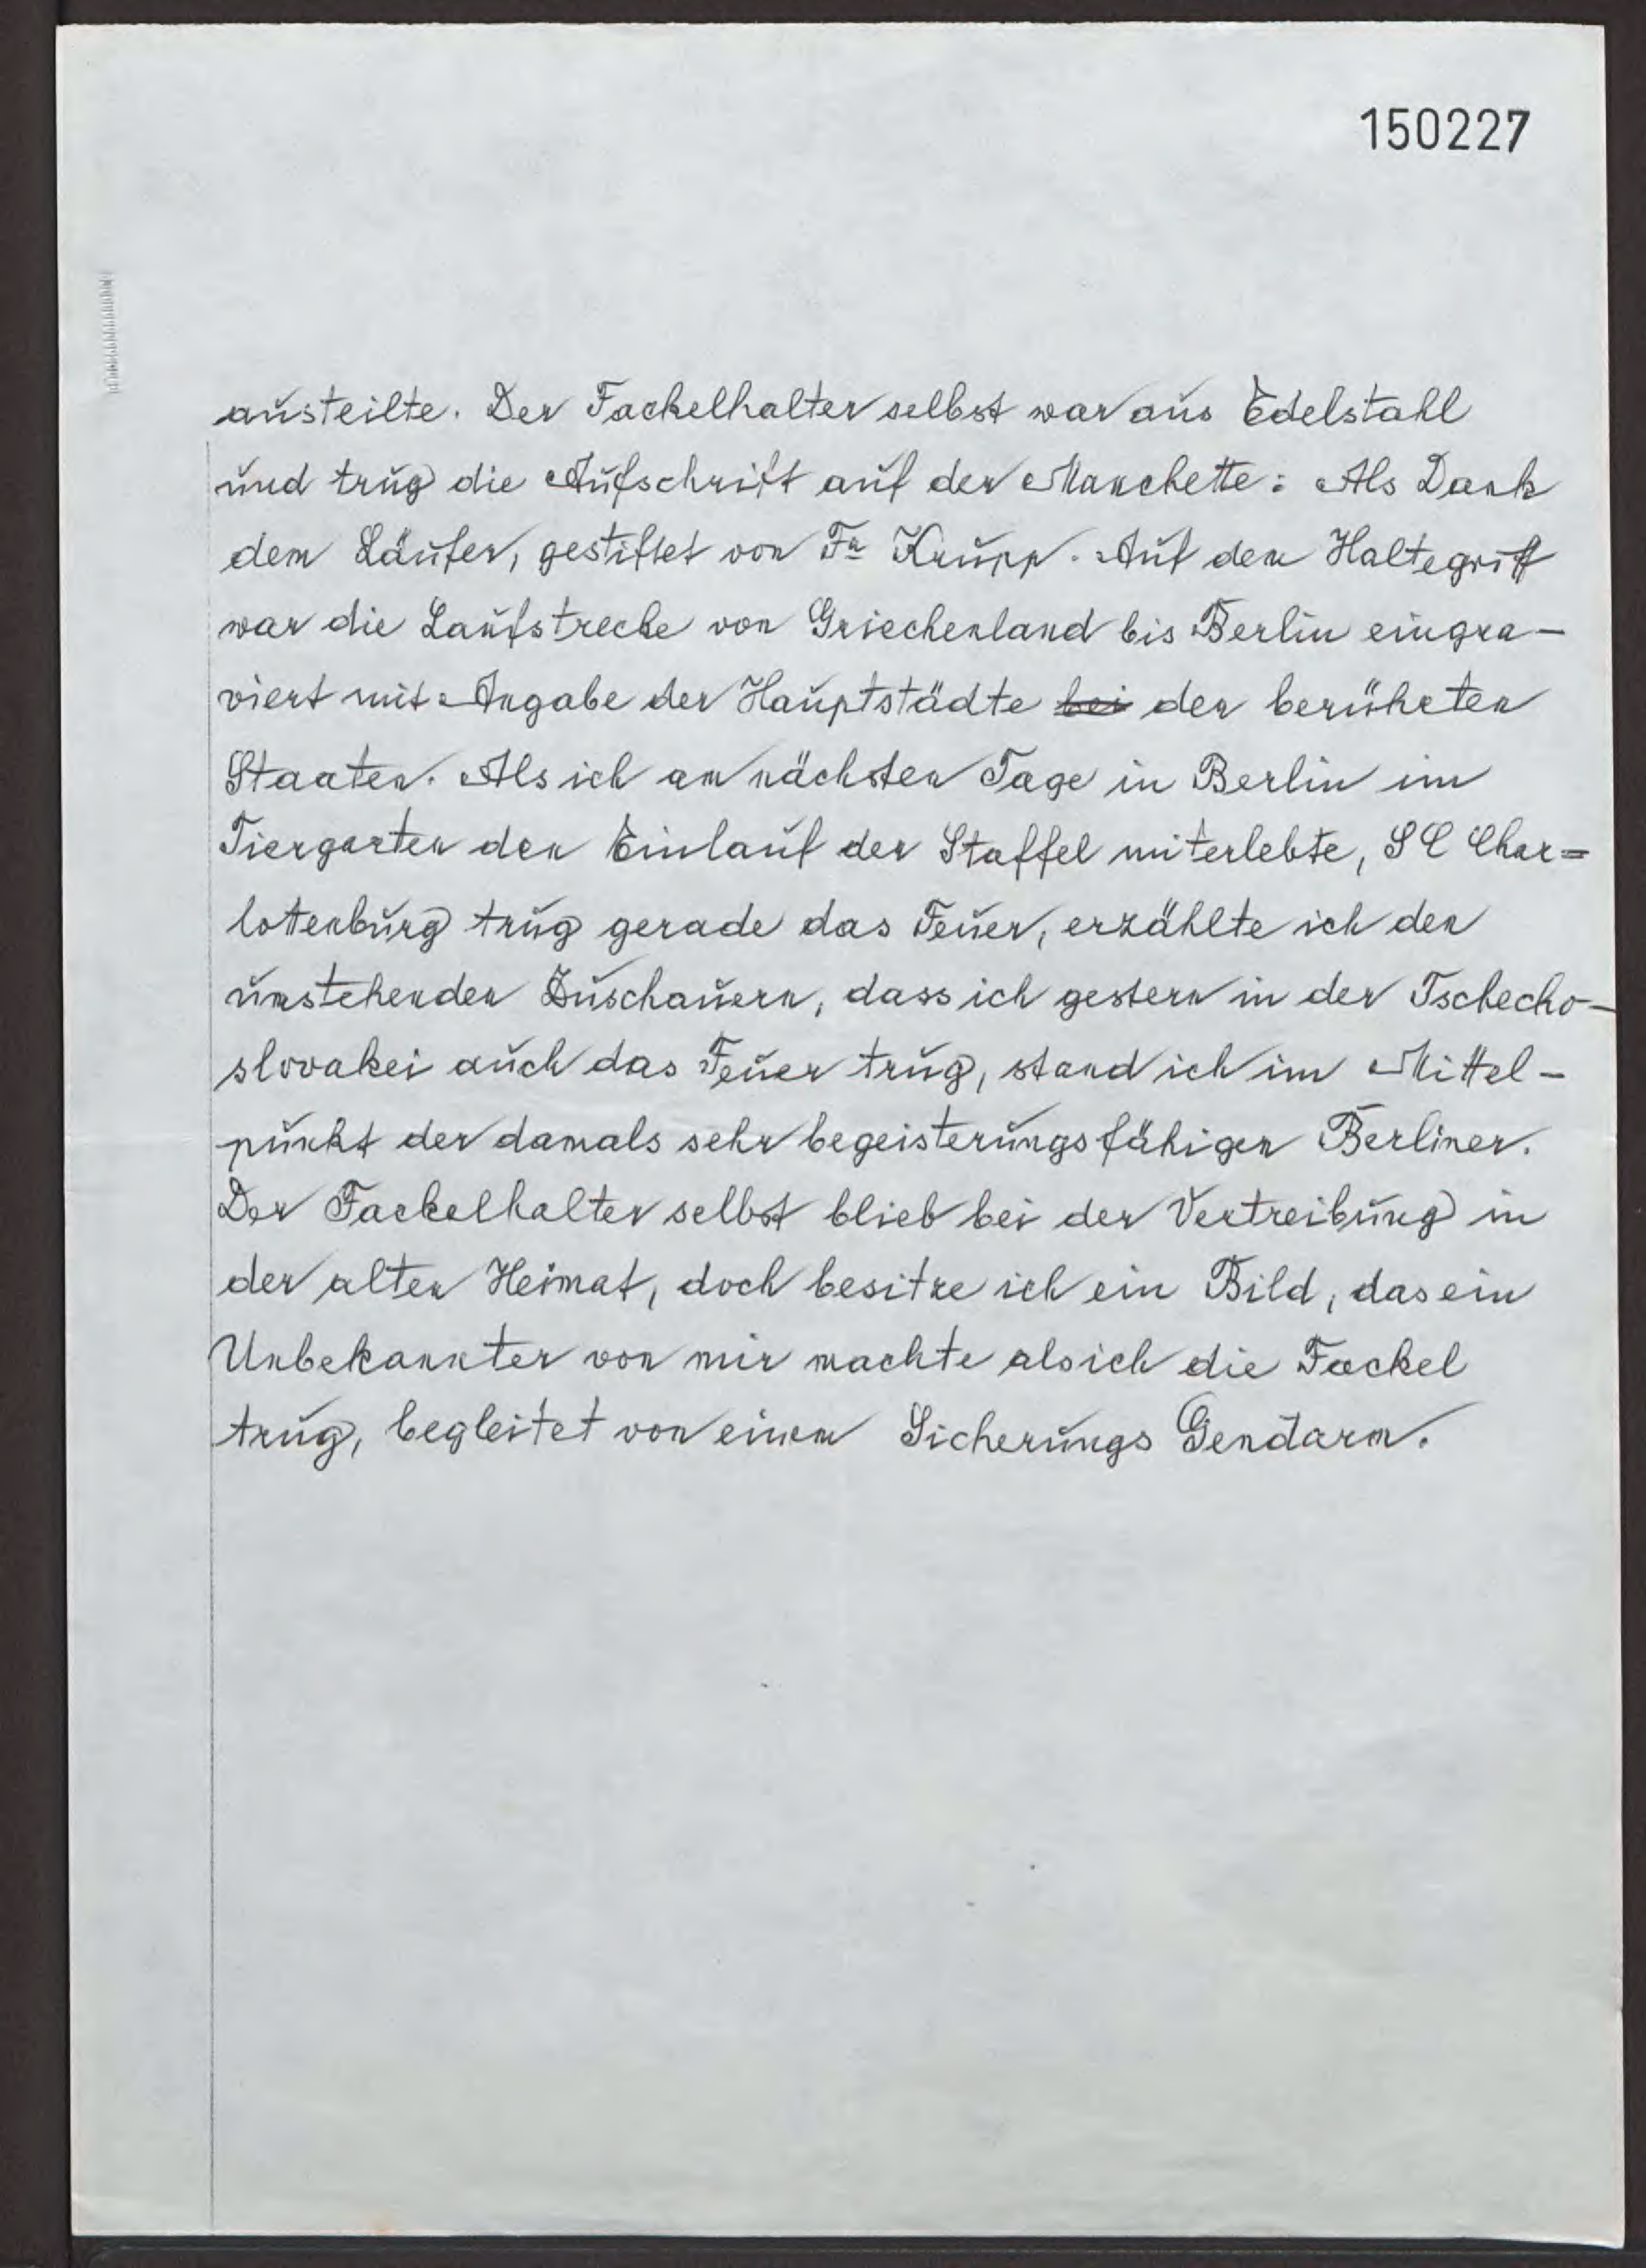 150227
austeilte. Der Fackelhalter selbst war aus Edelstahl
und trug die Aufschrift auf der Manchette: Als Dank
dem Läufer, gestiftet von Fa Krupp. Auf dem Haltegriff
war die Laufstrecke von Griechenland bis Berlin eingra-
viert mit Angabe der Hauptstädte bei der berührten
Staaten. Als ich am nächsten Tage in Berlin im
Tiergarten den Einlauf der Staffel miterlebte, SC Char=
lottenburg trug gerade das Feuer, erzählte ich den
umstehenden Zuschauern, dass ich gestern in der Tschecho-
slovakei auch das Feuer trug, stand ich im Mittel-
punkt der damals sehr begeisterungsfähigen Berliner.
Der Fackelhalter selbst blieb bei der Vertreibung in
der alten Heimat, doch besitze ich ein Bild, das ein
Unbekannter von mir machte als ich die Fackel
trug, begleitet von einem Sicherungs Gendarm.